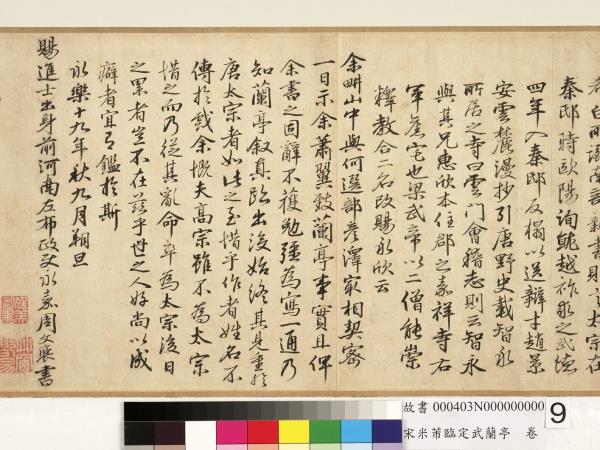 秦邸時歐陽詢
四年入秦邸反榻以送辯才趙景
安雲麓漫抄引唐野史載智永
所居之寺曰雲門會稽志則云智永
與其兄惠欣本住郡之嘉祥寺右
軍舊宅也梁武帝以二僧能崇
釋教合二名改賜永欣云
余畊山中與何選部彥澤家相契密
一日示余蕭翼賺蘭亭事實且俾
余書之固辭不獲勉彊為寫一通乃
知蘭亭叙真跡出沒始終其見重於
唐太宗者如此之至惜乎作者姓名不
傳於哉余慨夫高宗雖不為太宗
惜之而乃從其亂命卒為太宗後日
之累者豈不在茲乎世之人好尚以成
癖者宜有鑑於斯
永樂十九年秋九月朔旦
賜進士出身前河南左布政史永嘉周文褒書
故書 000403N000000000
宋米芾臨定武蘭亭 卷
9